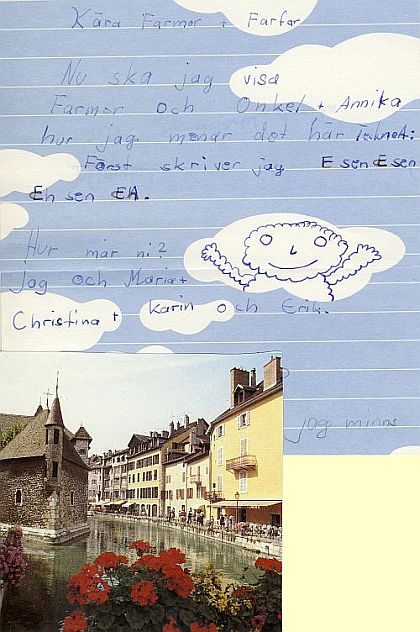 Kära Farmor + Farfar
Nu ska jag visa
Farmor och Onkel + Annika
hur jag menar det här Tecknet:
Först skriver jag E sen E sen
Eh sen EH.
Hur mår ni?
jag och Maria +
Christina + Karin och Erik.
jag minns